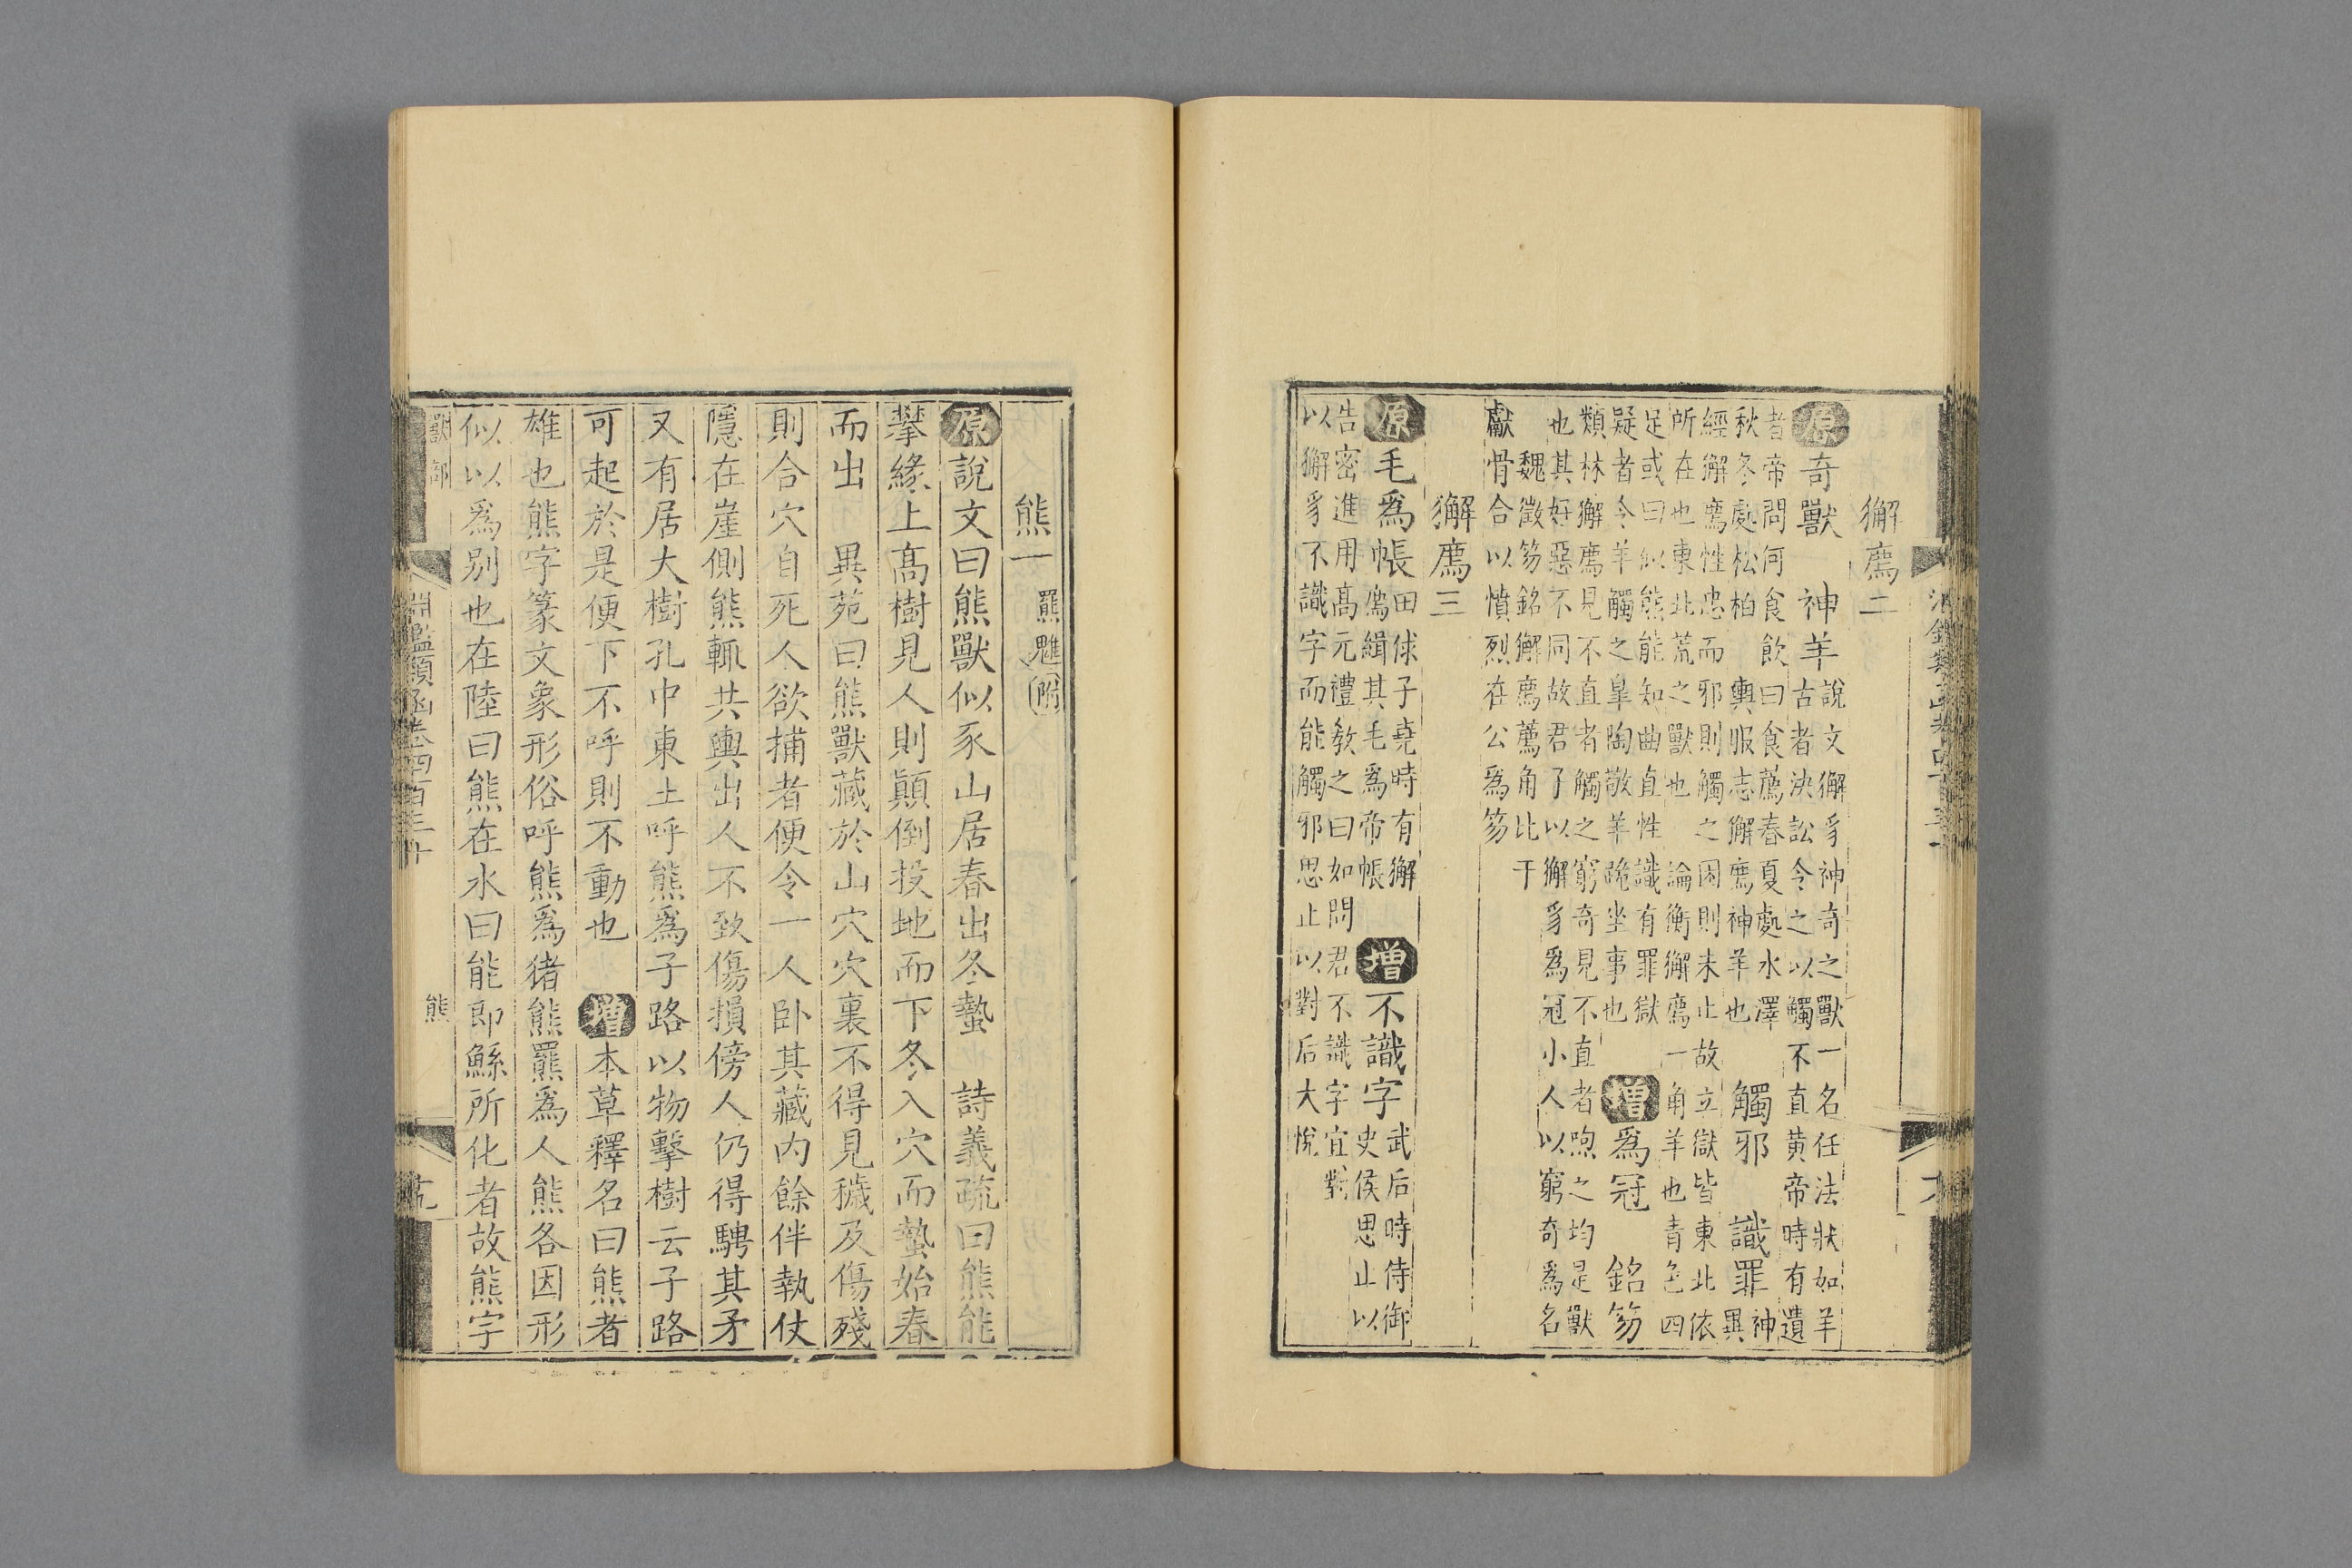 獬廌二
原奇獸 神羊說文獬豸神奇之獸一名任法狀如羊
古者決訟令之以觸不直黃帝時有遺
者帝問何食飲曰食薦春夏處水澤
秋冬處松柏 輿服志獬廌神羊也 觸邪 識罪神異
經獬廌性忠而邪則觸之困則未止故立獄皆東北依
所在也東北荒之獸也 論衡獬廌一角羊也青色四
足或曰似熊能知曲直性識有罪獄
疑者令羊觸之皐陶敬羊跪坐事也 增爲冠 銘笏
類林獬廌見不直者觸之窮奇見不直者煦之均是獸
也其好惡不同故君子以獬豸爲冠小人以窮奇爲名
魏徵笏銘獬廌薦角比干
獻骨合以憤烈在公爲笏
獬廌三
原毛爲帳田俅子堯時有獬
廌緝其毛爲帝帳 增不識字武后時侍御
史侯思止以
告密進用高元禮教之曰如問君不識字宜對
以獬豸不識字而能觸邪思止以對后大悅
熊一羆魋附
原說文曰熊獸似豕山居春出冬蟄 詩義疏曰熊能
攀緣上高樹見人則顚倒投地而下冬入穴而蟄始春
而出 異苑曰熊獸藏於山穴穴裏不得見穢及傷殘
則合穴自死人欲捕者便令一人卧其藏內餘伴執仗
隱在崖側熊輒共輿出人不致傷損傍人仍得騁其矛
又有居大樹孔中東土呼熊爲子路以物擊樹云子路
可起於是便下不呼則不動也 增本草釋名曰熊者
雄也熊字篆文象形俗呼熊爲猪熊羆爲人熊各因形
似以爲別也在陸曰熊在水曰能即鯀所化者故熊字
獸部 熊
淵鑑類函卷四百三十